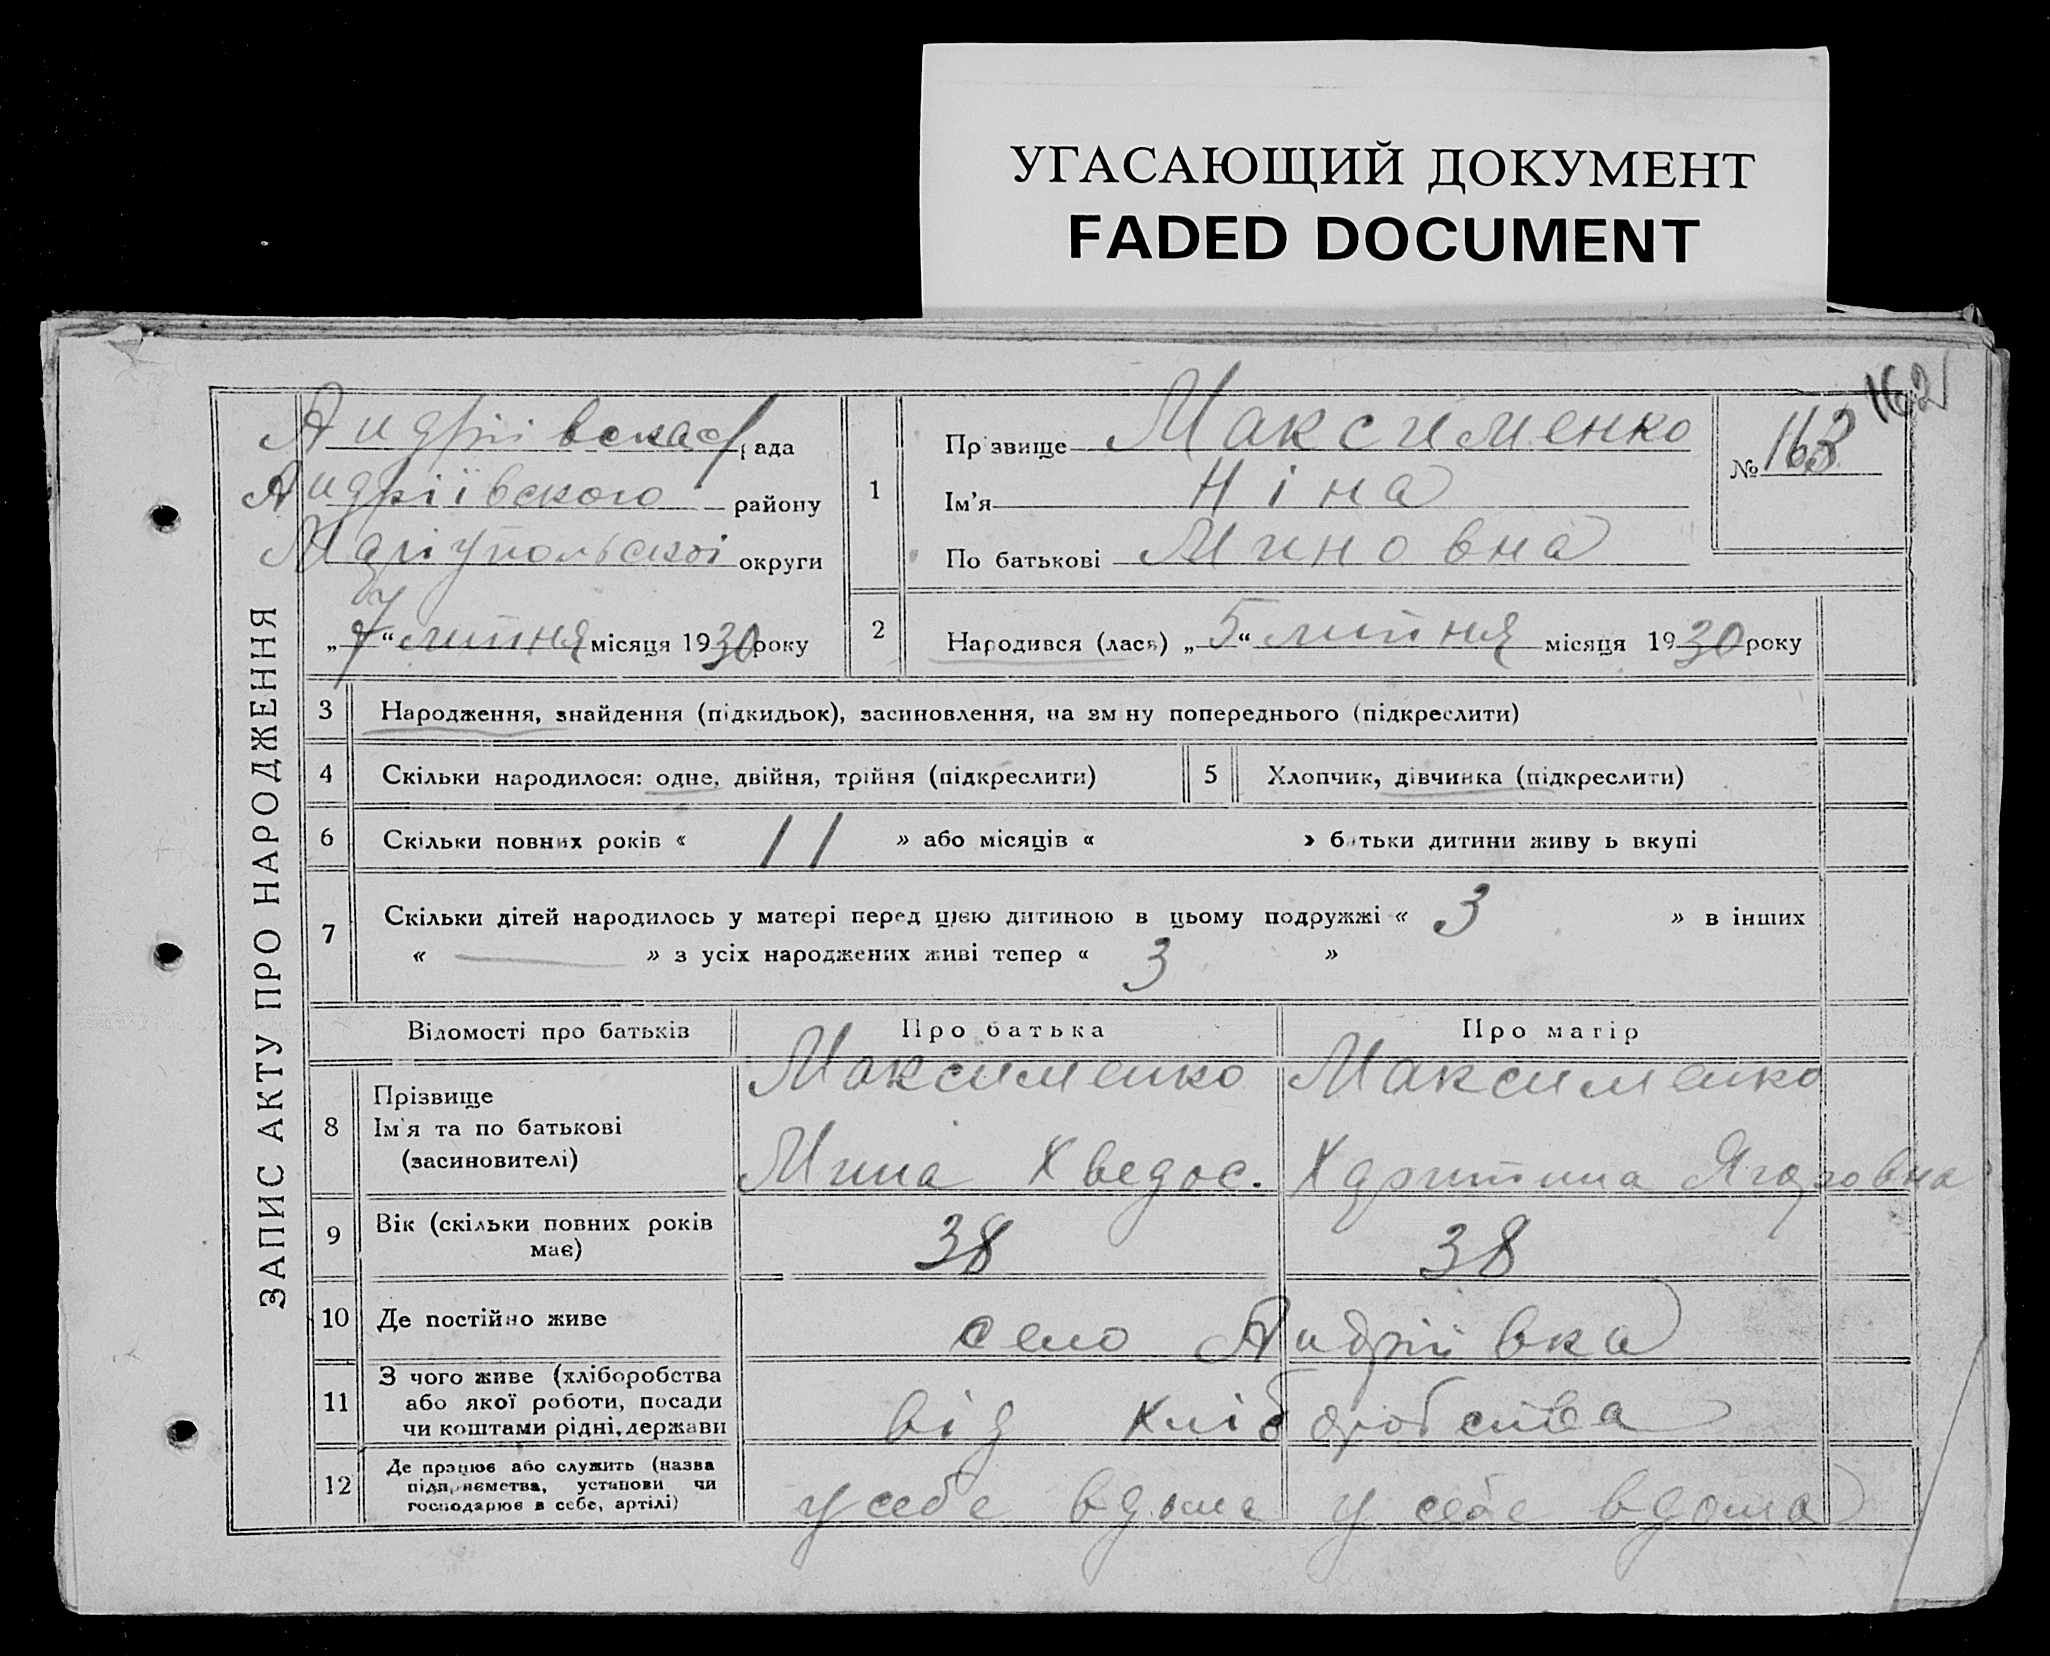 УГАСАЮЩИЙ ДОКУМЕНТ
FADED DOCUMENT
162
ЗАПИС АКТУ ПРО НАРОДЖЕННЯ
Андріівська рада
Андріївского району
Маріупольскоі округи
„7“ липня місяця 1930 року
1
Прізвище Максименко
Ім’я Ніна
По батькові Миновна
№ 163
2
Народився (лася) „5“ липня місяця 1930 року
3 Народження, знайдення (підкидьок), засиновлення, на зміну попереднього (підкреслити)
4 Скільки народилося: одне, двійня, трійня (підкреслити) 5 Хлопчик, дівчинка (підкреслити)
6 Скільки повних років « 11 » або місяців « » батьки дитини живуть вкупі
7 Скільки дітей народилось у матері перед цією дитиною в цьому подружжі « 3 » в інших
« — » з усіх народжених живі тепер « 3 »
Відомості про батьків Про батька Про матір
8 Прізвище
Ім’я та по батькові
(засиновителі)
Максименко
Мина Хведос.
Максименко
Харитина Ягоровна
9 Вік (скільки повних років
має)
38 38
10 Де постійно живе село Андріівка
11 З чого живе (хліборобства
або якої роботи, посади
чи коштами рідні, держави
від хліборобства
12 Де працює або служить (назва
підприємства, установи чи
господарює в себе, артілі)
у себе вдома у себе вдома